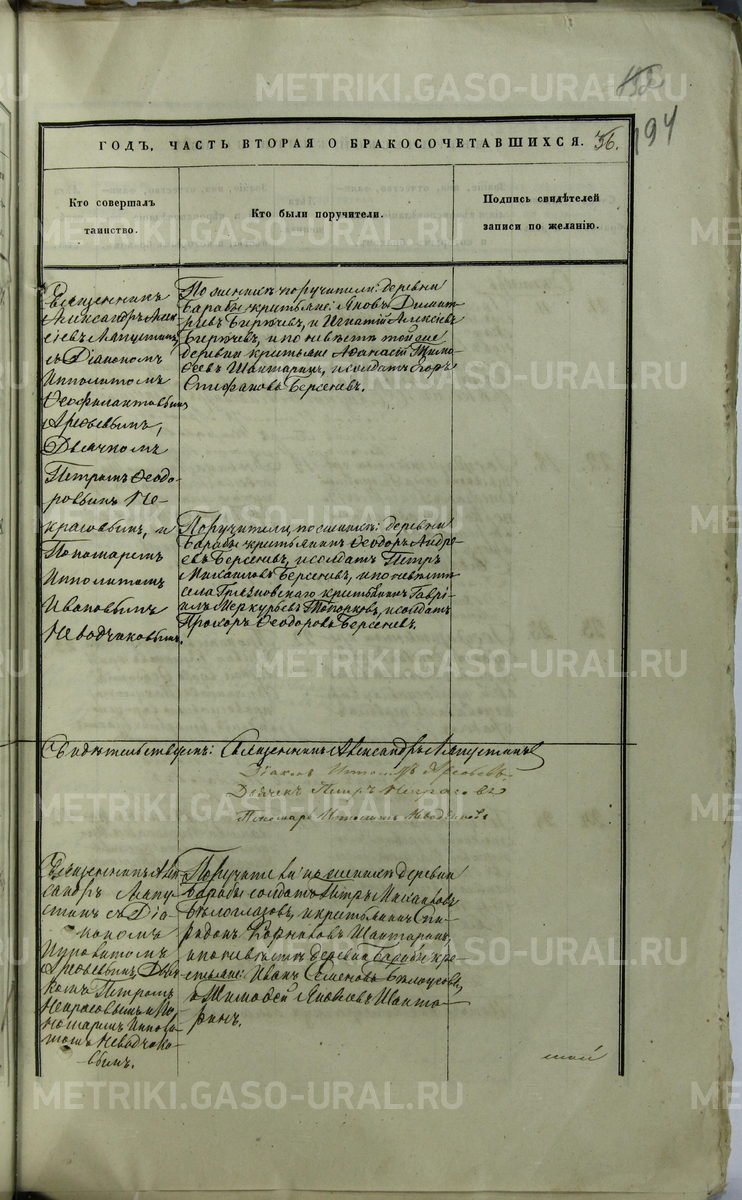 194
ГОДЪ, ЧАСТЬ ВТОРАЯ О БРАКОСОЧЕТАВШИХСЯ. 36.
Кто совершалъ таинство.
Кто были поручители.
Подпись свидѣтелей записи по желанію.
Священникъ
Александръ Алек
сіевъ Ляпустинъ
съ Діакономъ
Ипполитомъ
Ѳеофилактовымъ
Арефьевымъ,
Дьячкомъ
Петромъ Ѳеодо
ровымъ Не-
красовымъ, и
Пономаремъ
Ипполитомъ
Ивановымъ
Неводчиковымъ.
По женихѣ поручители: деревни
Барабы крестьяне: Яковъ Димит
ріевъ, и Игнатій Алексіевъ
и по невѣстѣ той же
деревни крестьяне Аѳанасій Тимо
ѳеевъ Шантаринъ, и солдатъ Егоръ
Епифановъ Берсеневъ.
Поручители по женихѣ: деревни
Барабы крестьянинъ Ѳеодоръ Андре
евъ Берсеневъ, и солдатъ Петръ
Михайловъ Берсеневъ, и по невѣстѣ
села Грязновскаго крестьянинъ Гаврі
илъ Меркурьевъ Топорковъ, и солдатъ
Прохоръ Ѳеодоровъ Берсеневъ.
Свидѣтельствуемъ: Священникъ Александръ Ляпустинъ
Діаконъ Ипполитъ Арефьевъ
Дьячекъ Петръ Некрасовъ
Пономарь Ипполитъ Неводчиковъ
Священникъ Алек
сандръ Ляпу
стинъ съ Діа-
кономъ
Ипполитомъ
Арефьевымъ, Дьяч
комъ Петромъ
Некрасовымъ и По
номаремъ Иппол
томъ Неводчико-
вымъ.
Поручители по женихѣ деревни
Барабы солдатъ Петръ Михайловъ
Бѣлоглазовъ, и крестьянинъ Спи-
ридонъ Корниловъ Шантаринъ,
и по невѣстѣ деревни Барабы кре-
стьяне: Иванъ Семеновъ
и Тимоѳей Яковлевъ Шанта-
ринъ.
METRIKI.GASO-URAL.RU